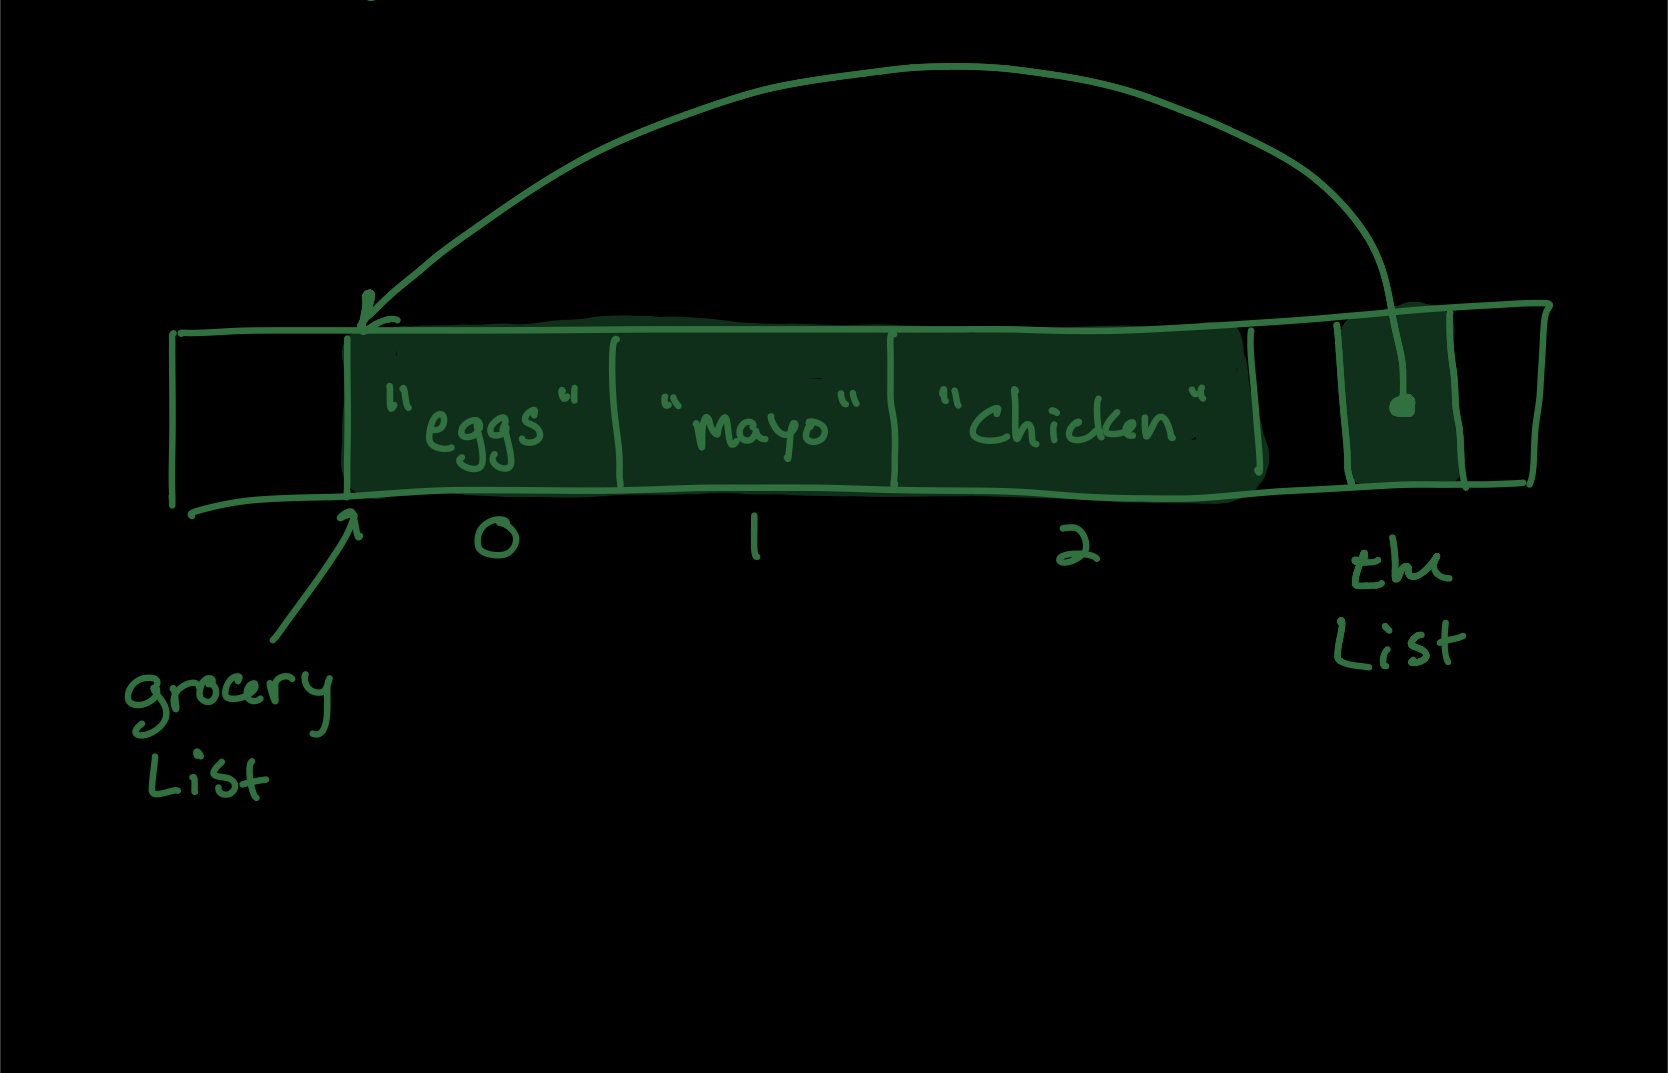 "eggs" "mayo" "Chicken"
0 1 2
the
List
grocery
List